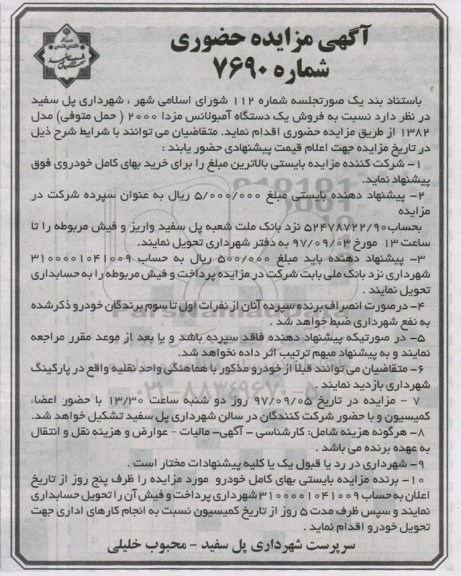 آگهی مزایده حضوری
شماره ۷۶۹۰
باستناد بند یک صورتجلسه شماره ۱۱۲ شورای اسلامی شهر ، شهرداری پل سفید
در نظر دارد نسبت به فروش یک دستگاه آمبولانس مزدا ۲۰۰۰ ( حمل متوفی) مدل
۱۳۸۲ از طریق مزایده حضوری اقدام نماید. متقاضیان می توانند با شرایط شرح ذیل
در تاریخ مزایده جهت اعلام قیمت پیشنهادی حضور یابند :
۱- شرکت کننده مزایده بایستی بالاترین مبلغ را برای خرید بهای کامل خودروی فوق
پیشنهاد نماید.
۲- پیشنهاد دهنده بایستی مبلغ ۵/۰۰۰/۰۰۰ ریال به عنوان سپرده شرکت در
مزایده
بحساب۵۲۴۷۸۷۲۲/۹۰ نزد بانک ملت شعبه پل سفید واریز و فیش مربوطه را تا
ساعت ۱۳ مورخ ۹۷/۰۹/۰۳ به دفتر شهرداری تحویل نمایند.
۳- پیشنهاد دهنده باید مبلغ ۵۰۰/۰۰۰ ریال به حساب ۳۱۰۰۰۰۱۰۴۱۰۰۹
شهرداری نزد بانک ملی بابت شرکت در مزایده پرداخت و فیش مربوطه را به حسابداری
تحویل نمایند .
۴- درصورت انصراف برنده سپرده آنان از نفرات اول تا سوم برندگان خودرو ذکرشده
به نفع شهرداری ضبط خواهد شد .
۵- در صورتیکه پیشنهاد دهنده فاقد سپرده باشد و یا بعد از موعد مقرر مراجعه
نمایند و به پیشنهاد مبهم ترتیب اثر داده نخواهد شد.
۶- متقاضیان می توانند قبلاً از خودرو مذکور با هماهنگی واحد نقلیه واقع در پارکینگ
شهرداری بازدید نمایند .
۷ - مزایده در تاریخ ۹۷/۰۹/۰۵ روز دو شنبه ساعت ۱۳/۳۰ با حضور اعضاء
کمیسیون و با حضور شرکت کنندگان در سالن شهرداری پل سفید تشکیل خواهد شد.
۸- هرگونه هزینه شامل: کارشناسی - آگهی- مالیات - عوارض و هزینه نقل و انتقال
به عهده برنده می باشد .
۹- شهرداری در رد یا قبول یک یا کلیه پیشنهادات مختار است .
۱۰- برنده مزایده بایستی بهای کامل خودرو مورد مزایده را ظرف پنج روز از تاریخ
اعلان به حساب ۳۱۰۰۰۰۱۰۴۱۰۰۹ شهرداری پرداخت و فیش آن را تحویل حسابداری
نمایند و سپس ظرف مدت ۵ روز از تاریخ کمیسیون نسبت به انجام کارهای اداری جهت
تحویل خودرو اقدام نماید .
سرپرست شهرداری پل سفید - محبوب خلیلی